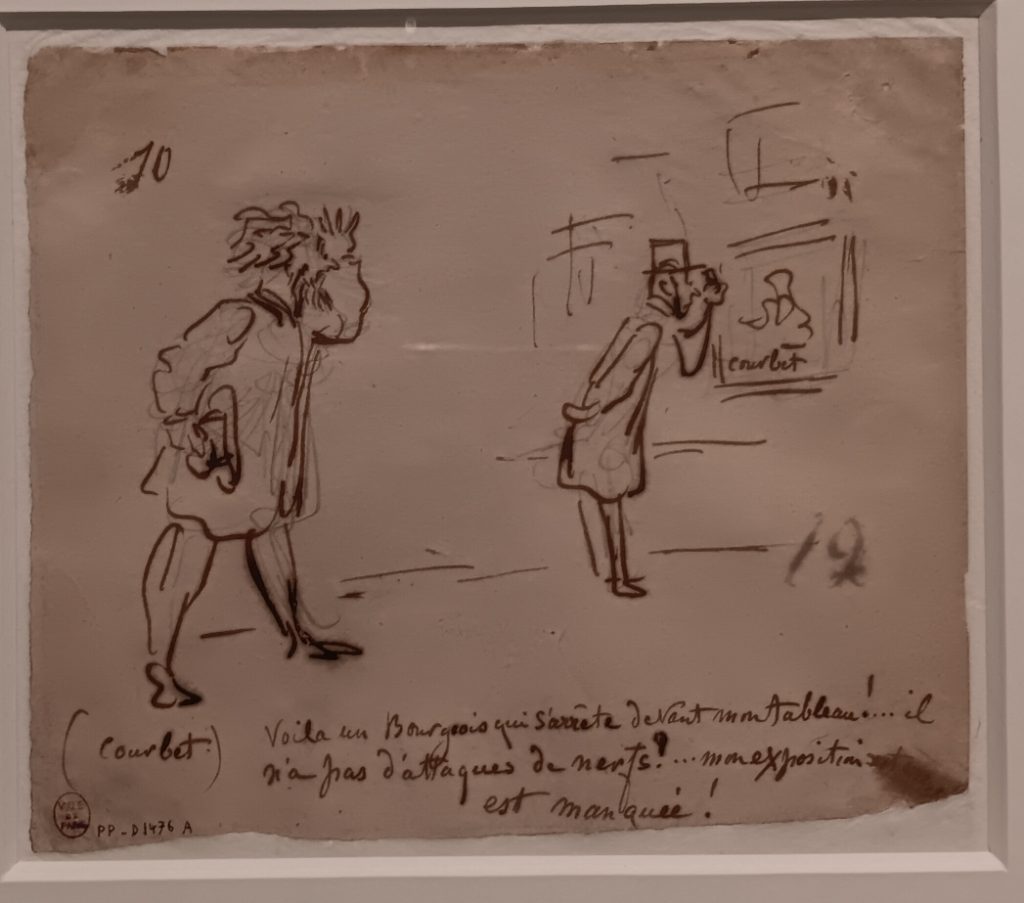 10
courbet
12
(Courbet.) Voila un Bourgeois qui s'arrête devant mon tableau!... il
n'a pas d'attaques de nerfs?... mon exposition
est manquée!
VILLE DE PARIS
PP-D1476 A